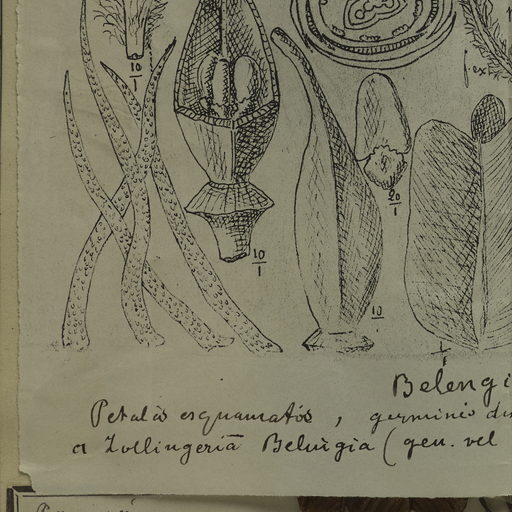 10
1
f. ex
10
1
20
1
10
1
Belengi
Petalis esquamatis, germinis
a Zollingeriā Belingia (gen. vel